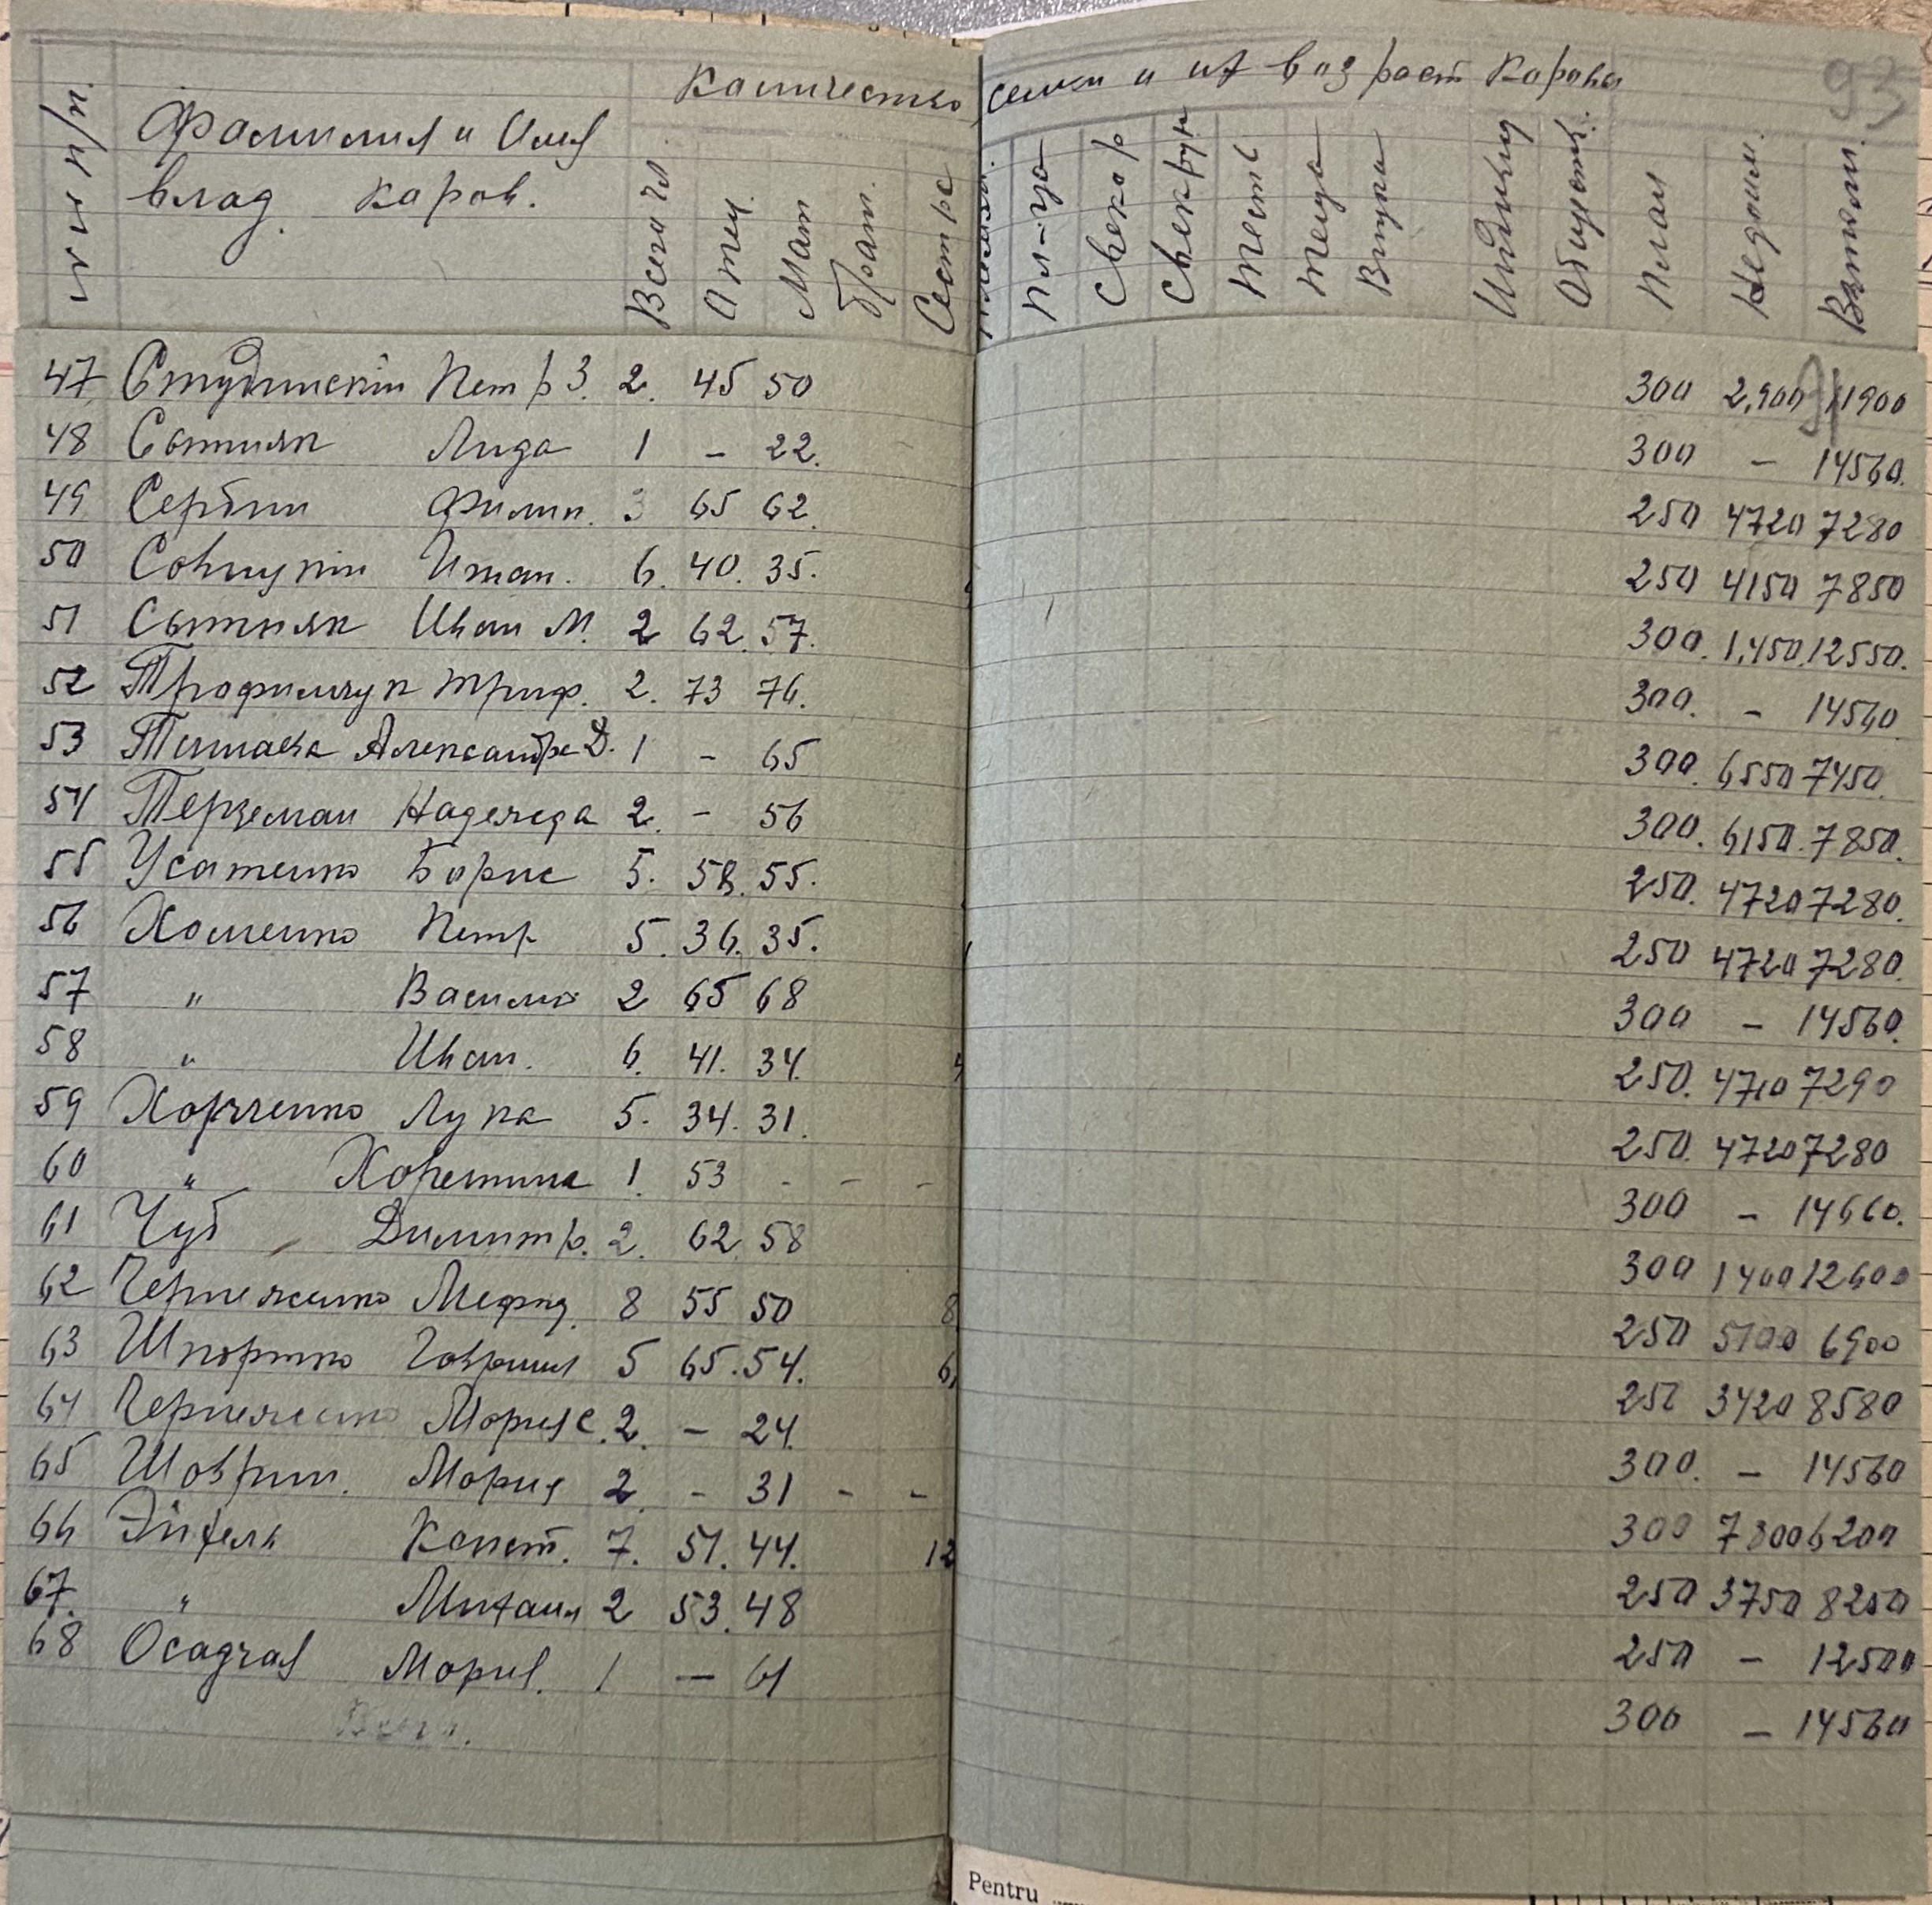 Количество семьи и их возраст Карова
93
№№ п/п. Фамилия и Имя влад. каров. Всего чл. Отец. Мат Брат. Сестра Пл-ца Свекор Свекрун Тесть Теща Внуки Индивид Общеста. План Недоим. Выполн.
47 Студзинский Петр З. 2. 45 50 300 2,900 11900
48 Сытник Лида 1 – 22. 300 – 14560.
49 Сербин Филип. 3 65 62. 250 4720 7280
50 Иман. 6. 40. 35. 250 4150 7850
51 Сытник Иван М. 2 62. 57. 300. 1,450. 12550.
52 Трофимчук Триф. 2. 73 76. 300. – 14560
53 Александра Д. 1 – 65 300. 6550 7450.
54 Терземан Надежда 2. – 56 300. 6150. 7850.
55 Усатенко Борис 5. 58. 55. 250. 4720 7280.
56 Хоменко Петр 5. 36. 35. 250 4720 7280.
57 " Василий 2 65 68 300 – 14560.
58 " Иван. 6. 41. 34. 4 250. 4710 7290
59 Харченко Лука 5. 34. 31. 250. 4720 7280
60 " 1. 53 - – – 300 – 14660.
61 Чуб Димитр. 2. 62 58 300 1400 12600
62 Мефод. 8 55 50 8 250 5100 6900
63 Шпортко Гавриил 5 65. 54. 6, 250 3420 8580
64 Мория С. 2. – 24. 300. – 14560
65 Шоврин. Мория 2. - 31 - - 300 7800 6200
66 Конст. 7. 51. 44. 12 250 3750 8250
67. " Михаил 2 53. 48 250 – 12500
68 Осадчая Мория. 1 — 61 300 – 14560
Всего.
Pentru